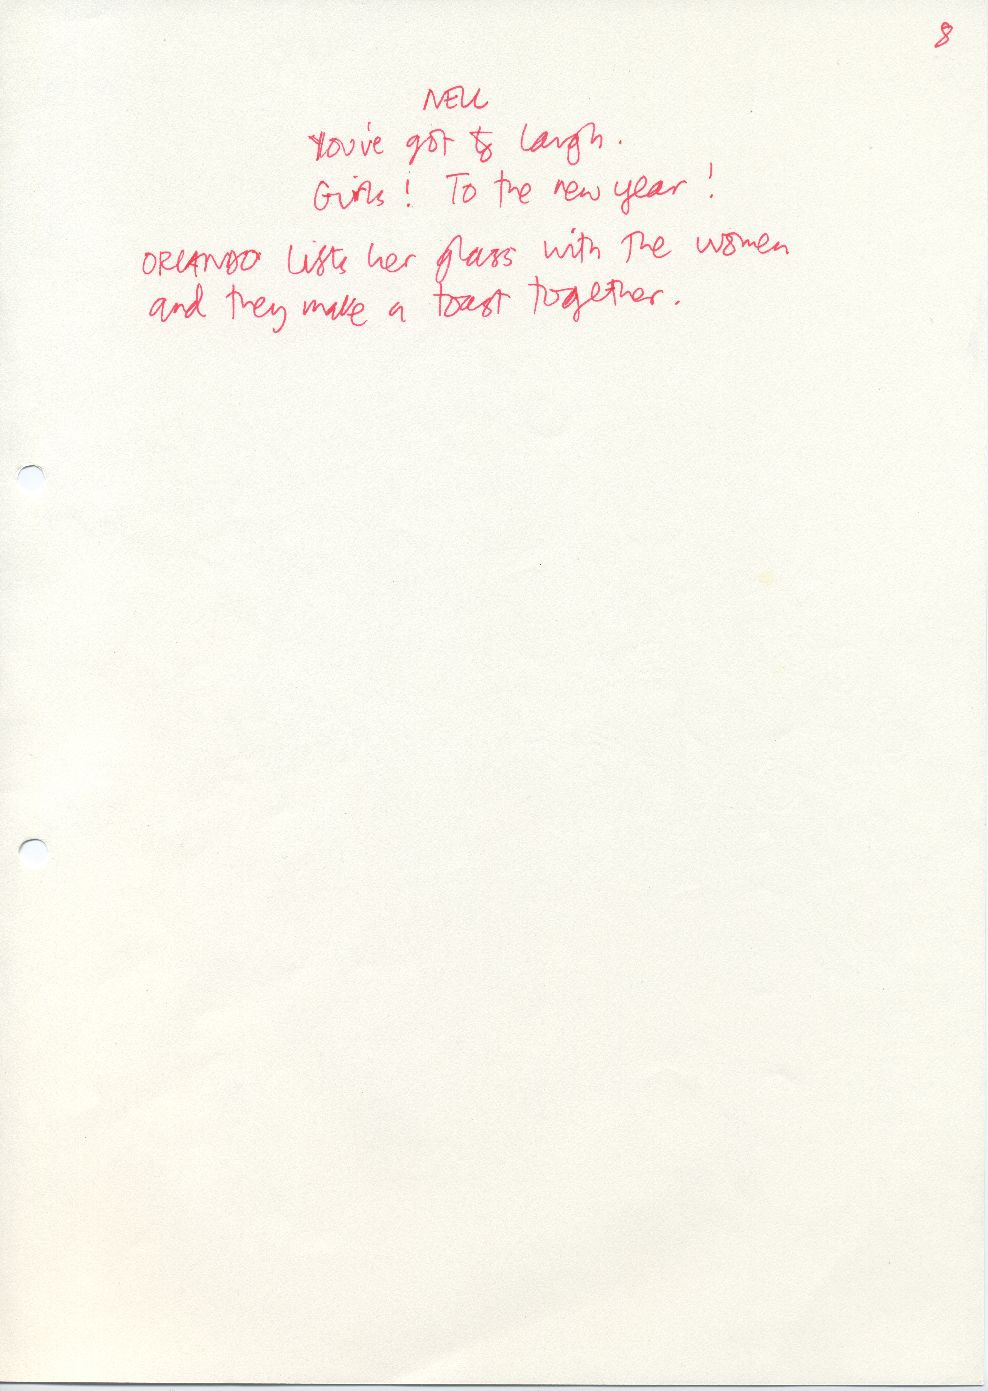 8
NELL
You've got to laugh.
Girls! To the new year!
ORLANDO lifts her glass with the women
and they make a toast together.